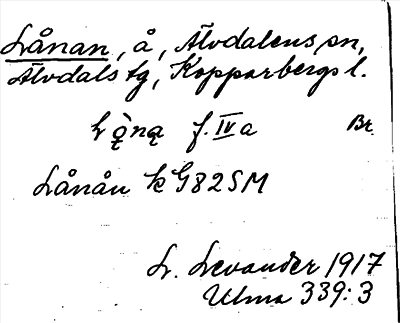 Lånan, å, Älvdalens sn,
Älvdals tg, Kopparbergs l.
f. IV a Br.
Lånån k G82SM
L. Levander 1917
Ulma 339:3